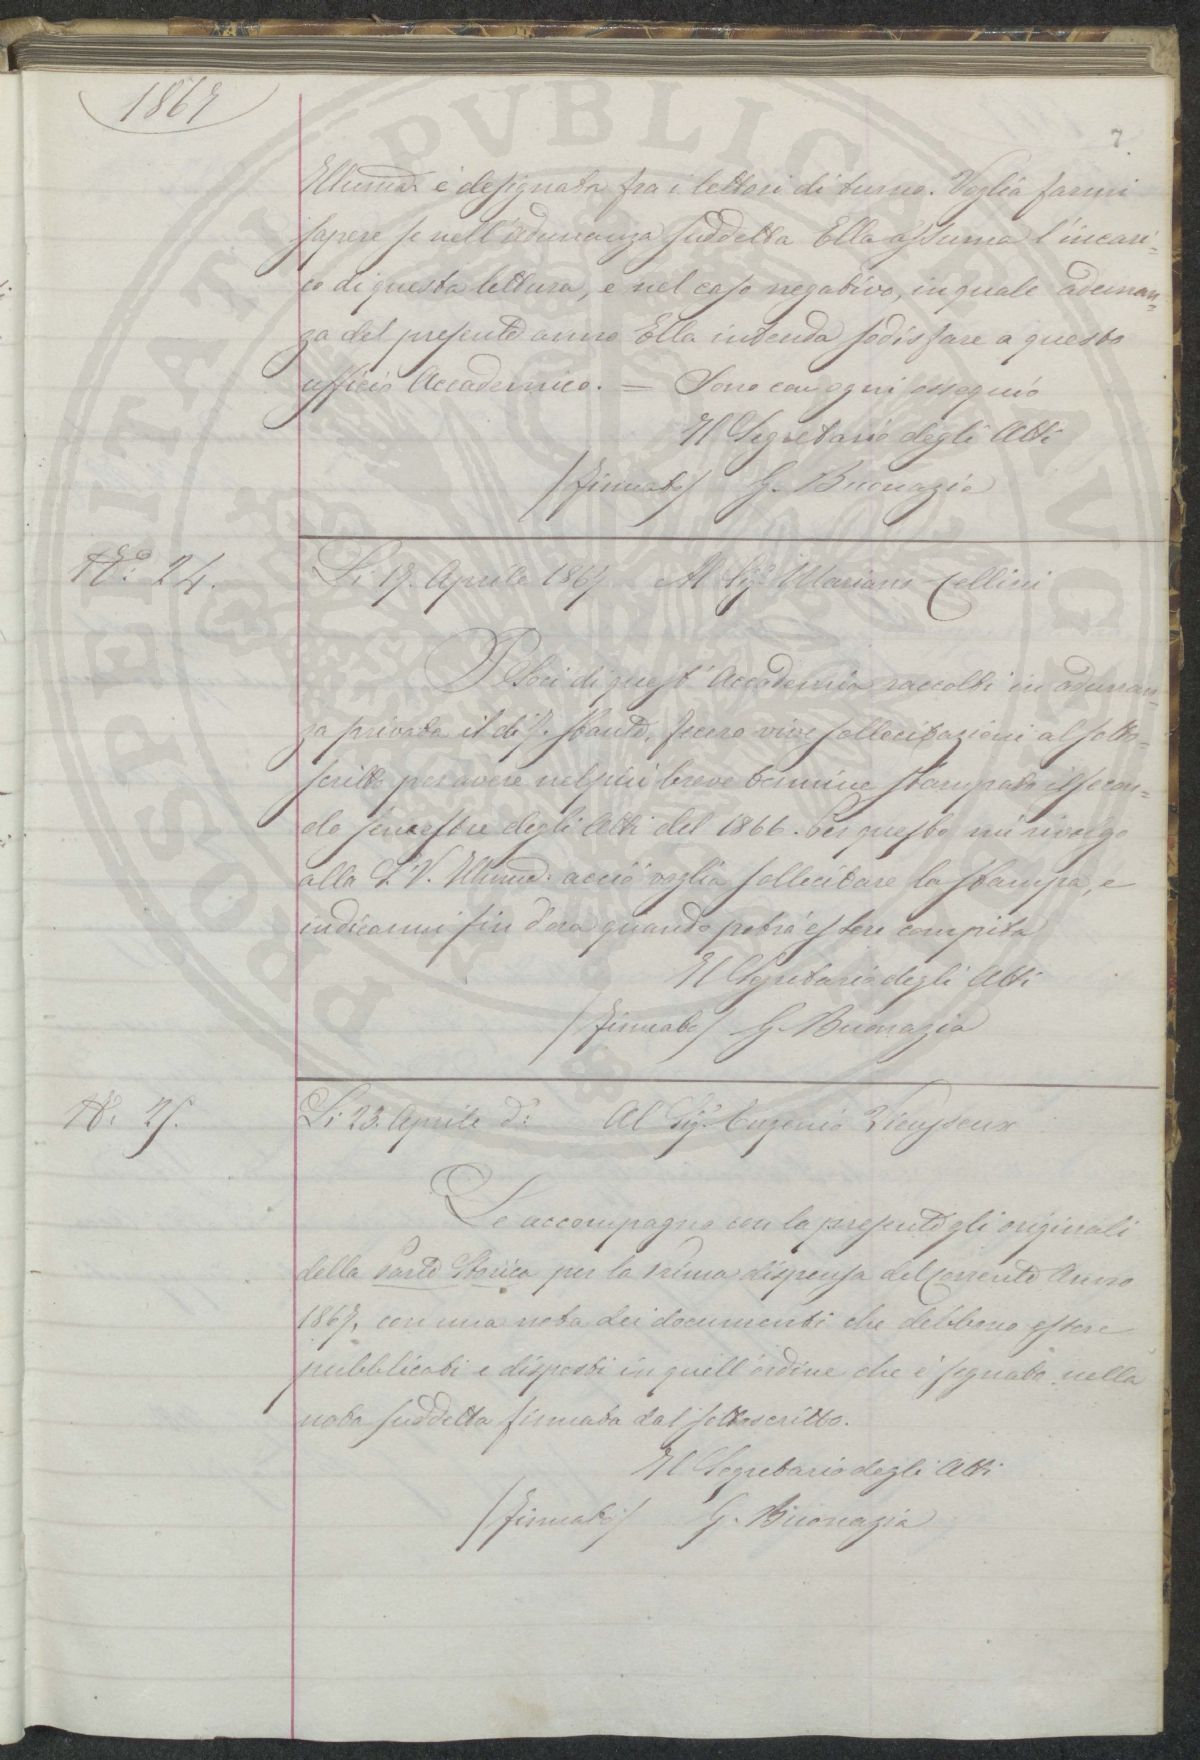 1867
7.
Illuma è designata fra i lettori di turno. Voglia farmi
sapere se nell'adunanza suddetta Ella assuma l'incari=
co di questa lettura, e nel caso negativo, in quale adunan=
za del presente anno Ella intenda sodisfare a questo
ufficio Accademico. = Sono con ogni ossequio
Il Segretario degli Atti
/Firmato/ G. Buonazia
No: 24.
Li 17. Aprile 1867 Al Sigr Mariano Cellini
I Soci di quest'Accademia raccolti in adunan=
za privata il dì 7. stante, fecero vive sollecitazioni al sotto=
scritto per avere nel più breve termine stampato il secon=
do semestre degli Atti del 1866. Per questo mi rivolgo
alla S. V. Illuma. acciò voglia sollecitare la stampa, e
indicarmi fin d'ora quando potrà essere compita
Il Segretario degli Atti
/Firmato/ G. Buonazia
No: 25.
Li 23. Aprile do: Al Sigr. Eugenio Vieusseux
Le accompagno con la presente gli originali
della Parte Storica per la Prima dispensa del corrente Anno
1867, con una nota dei documenti che debbono essere
pubblicati e disposti in quell'ordine che è segnato nella
nota suddetta firmata dal sottoscritto.
Il Segretario degli Atti
/Firmato/ G. Buonazia
PROSPERITATI PVBLICAE AVGENDAE